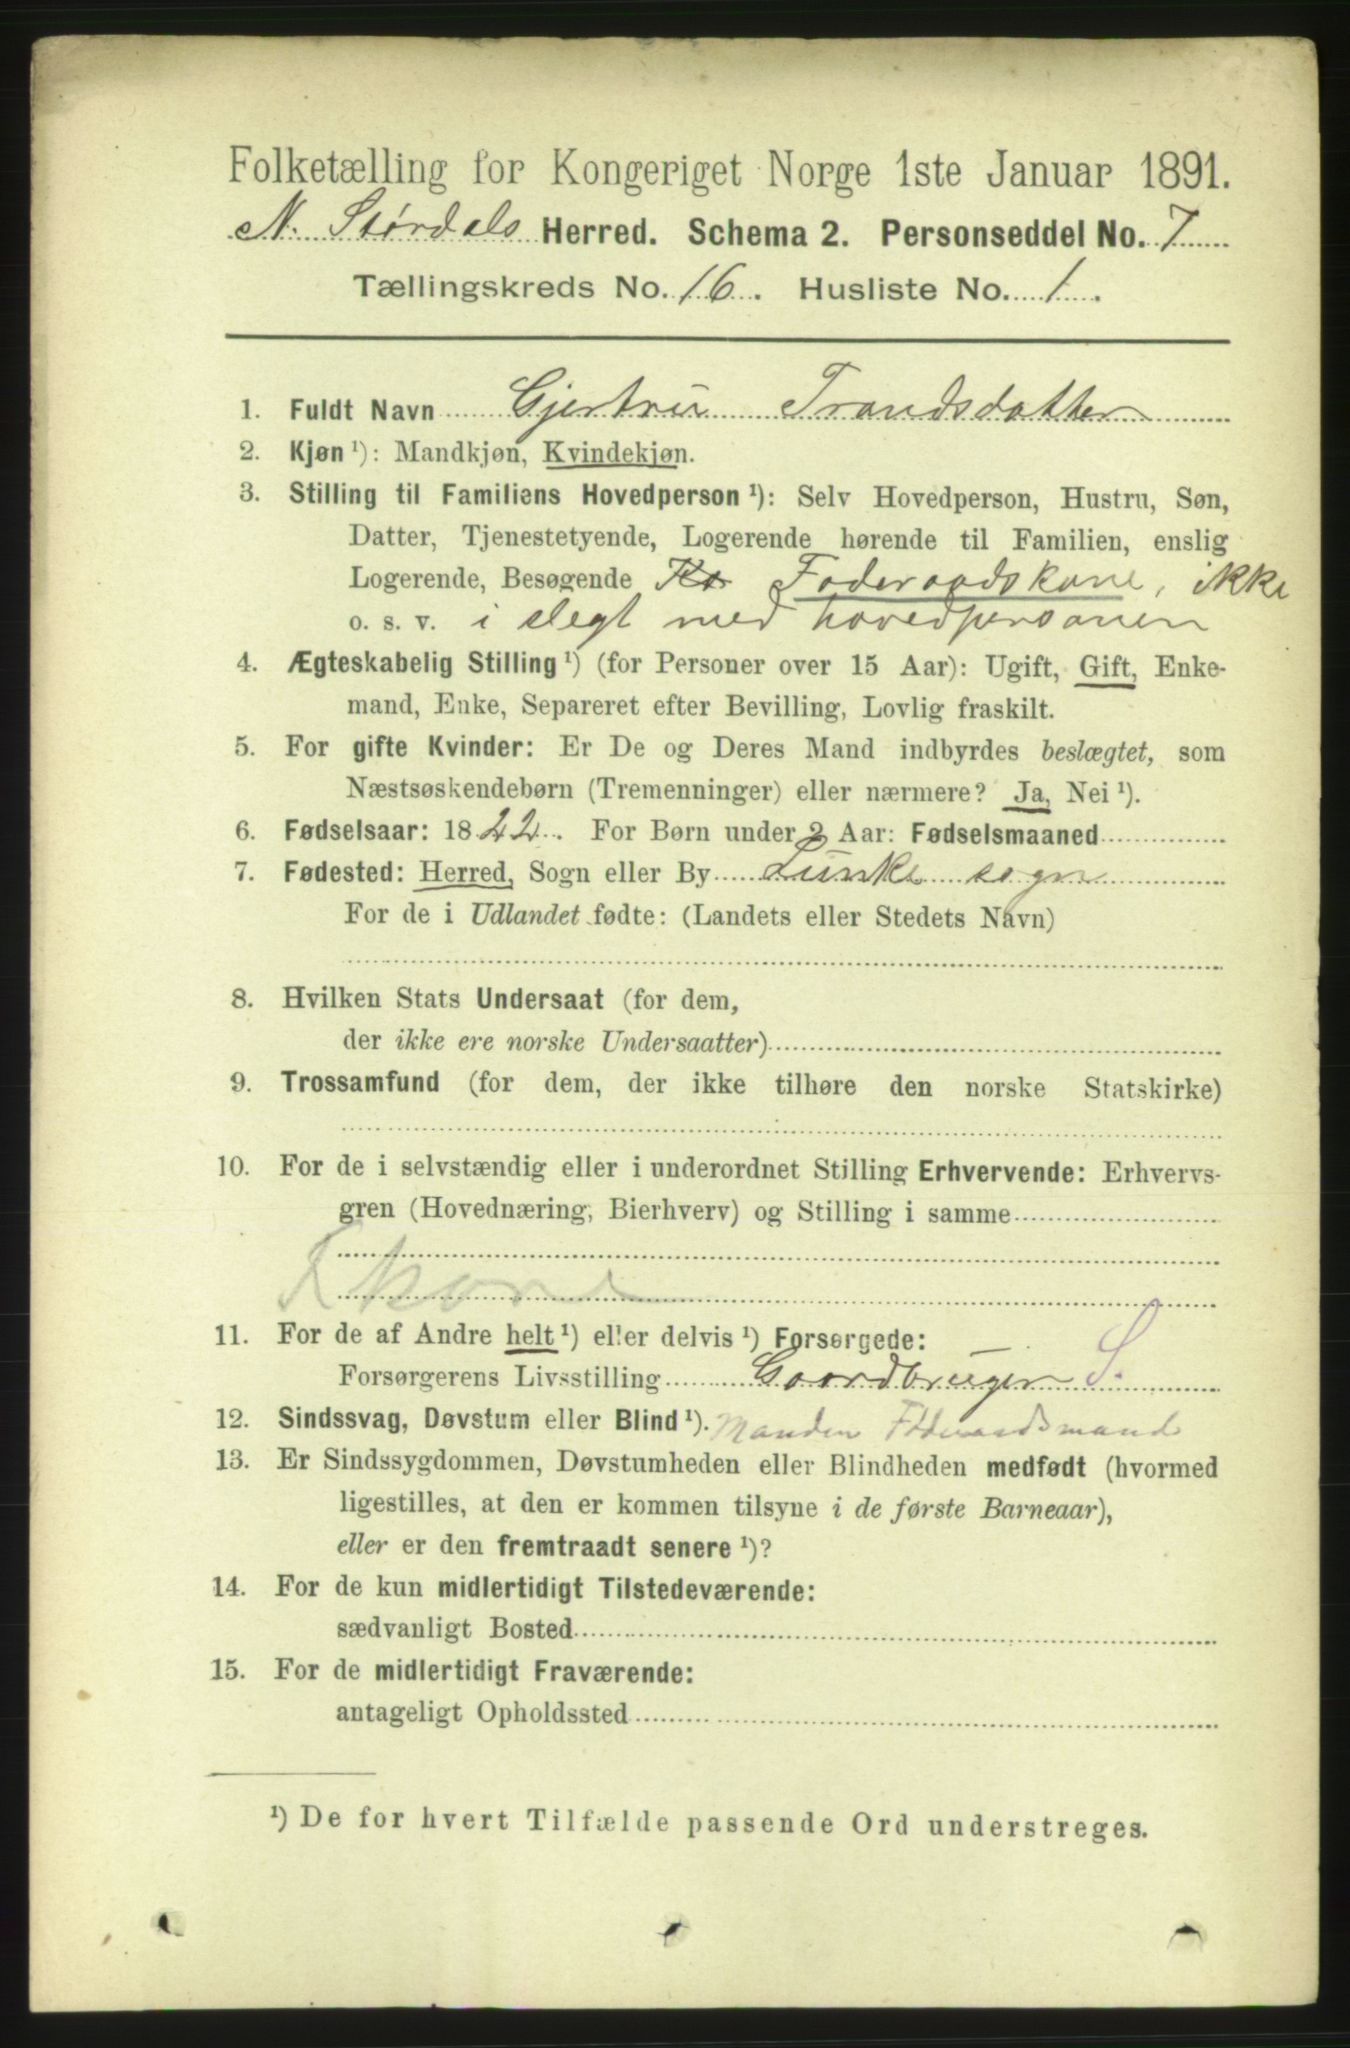 Folketælling for Kongeriget Norge 1ste Januar 1891.
N. Størdals Herred. Schema 2. Personseddel No. 7
Tællingskreds No. 16. Husliste No. 1.
1. Fuldt Navn Gjertru Trondsdatter
2. Kjøn ¹): Mandkjøn, Kvindekjøn.
3. Stilling til Familiens Hovedperson ¹): Selv Hovedperson, Hustru, Søn,
Datter, Tjenestetyende, Logerende hørende til Familien, enslig
Logerende, Besøgende Foderaadskone, ikke
o. s. v. i slegt med hovedpersonen
4. Ægteskabelig Stilling ¹) (for Personer over 15 Aar): Ugift, Gift, Enke-
mand, Enke, Separeret efter Bevilling, Lovlig fraskilt.
5. For gifte Kvinder: Er De og Deres Mand indbyrdes beslægtet, som
Næstsøskendebørn (Tremenninger) eller nærmere? Ja, Nei ¹).
6. Fødselsaar: 1822. For Børn under 2 Aar: Fødselsmaaned
7. Fødested: Herred, Sogn eller By Lunke sogn
For de i Udlandet fødte: (Landets eller Stedets Navn)
8. Hvilken Stats Undersaat (for dem,
der ikke ere norske Undersaatter)
9. Trossamfund (for dem, der ikke tilhøre den norske Statskirke)
10. For de i selvstændig eller i underordnet Stilling Erhvervende: Erhvervs-
gren (Hovednæring, Bierhverv) og Stilling i samme
kone
11. For de af Andre helt ¹) eller delvis ¹) Forsørgede:
Forsørgerens Livsstilling Gaardbruger S.
12. Sindssvag, Døvstum eller Blind ¹). Manden Føderaadsmand
13. Er Sindssygdommen, Døvstumheden eller Blindheden medfødt (hvormed
ligestilles, at den er kommen tilsyne i de første Barneaar),
eller er den fremtraadt senere ¹)?
14. For de kun midlertidigt Tilstedeværende:
sædvanligt Bosted
15. For de midlertidigt Fraværende:
antageligt Opholdssted
¹) De for hvert Tilfælde passende Ord understreges.